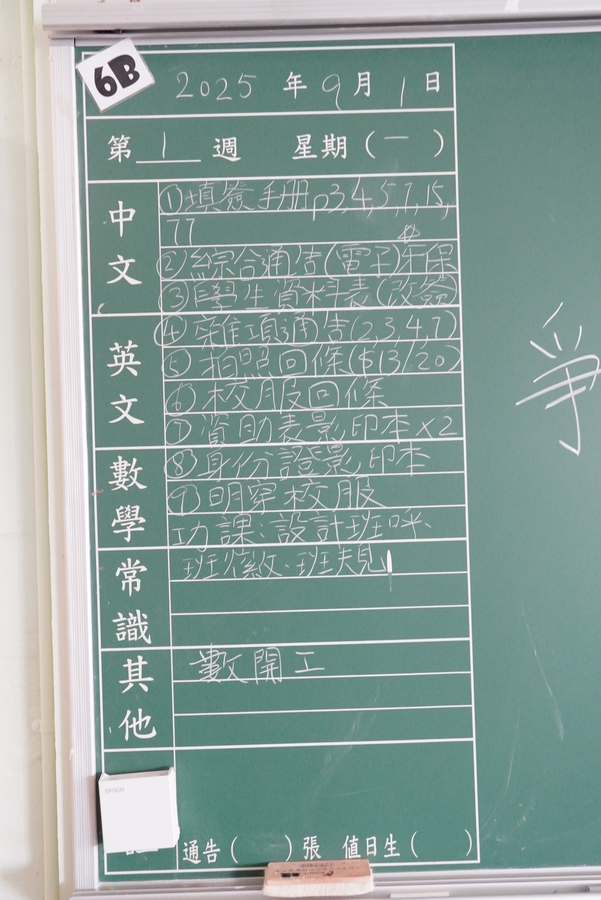 6B
2025 年 9 月 1 日
第 1 週 星期(一)
中文
①填簽手冊p3,4,5,7,15,
77
②綜合通告(電子)午保
③學生資料表(改簽)
英文
④雜項通告(2,3,4,7)
⑤拍照回條($13/20)
⑥校服回條
⑦資助表影印本x2
數學
⑧身份證影印本
⑨明穿校服
功課:設計班呼、
常識
班徽、班規
其他
數開工
EPSON
通告( )張 值日生( )
爭